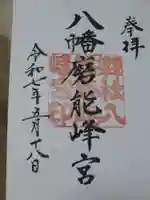 奉拝
八幡磨能峰宮
令和七年五月十八日